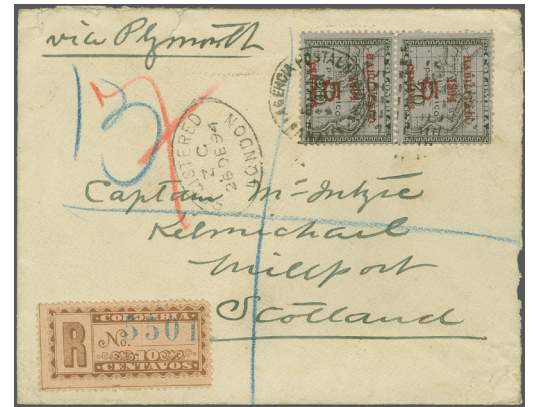 via Plymouth
AGENCIA POSTAL
1894
1894
13
REGISTERED
Z.C.
26 DE 94
LONDON
Captain McIntyre
Kelmichael
Millport
Scotland
COLOMBIA
R No. 5501
10
CENTAVOS